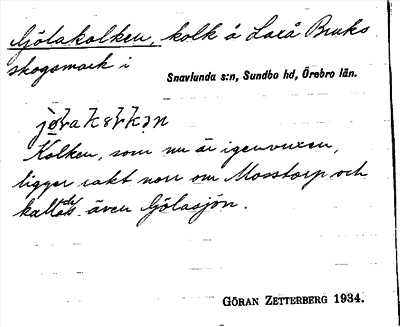 Gjölakolken, kolk å Laxå Bruks
skogsmark i
Snavlunda s:n, Sundbo hd, Örebro län.
Kolken, som nu är igenvuxen,
ligger rakt norr om Mosstorp och
kallades även Gjölasjön.
GÖRAN ZETTERBERG 1934.